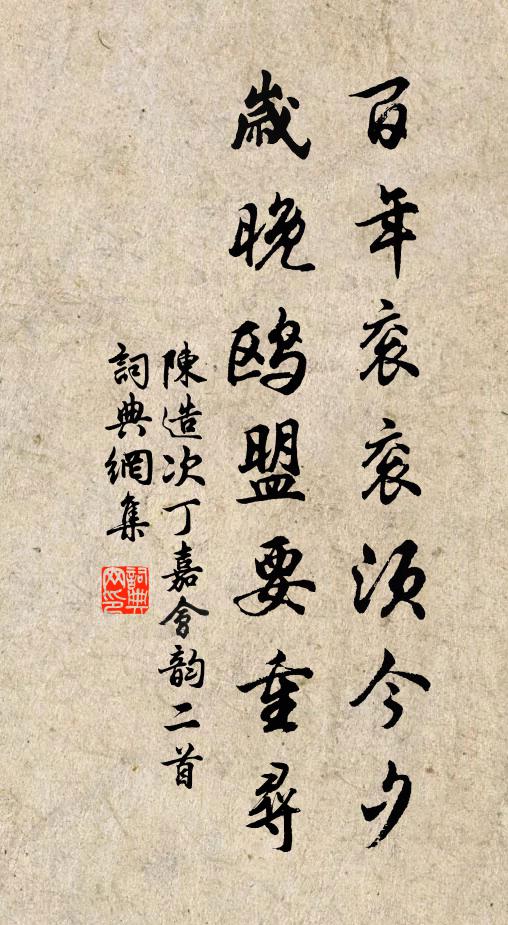 百年衮衮须今夕
歲晚鸥盟要重尋
陳造次丁嘉會韵二首
詞典網集
詞典网印